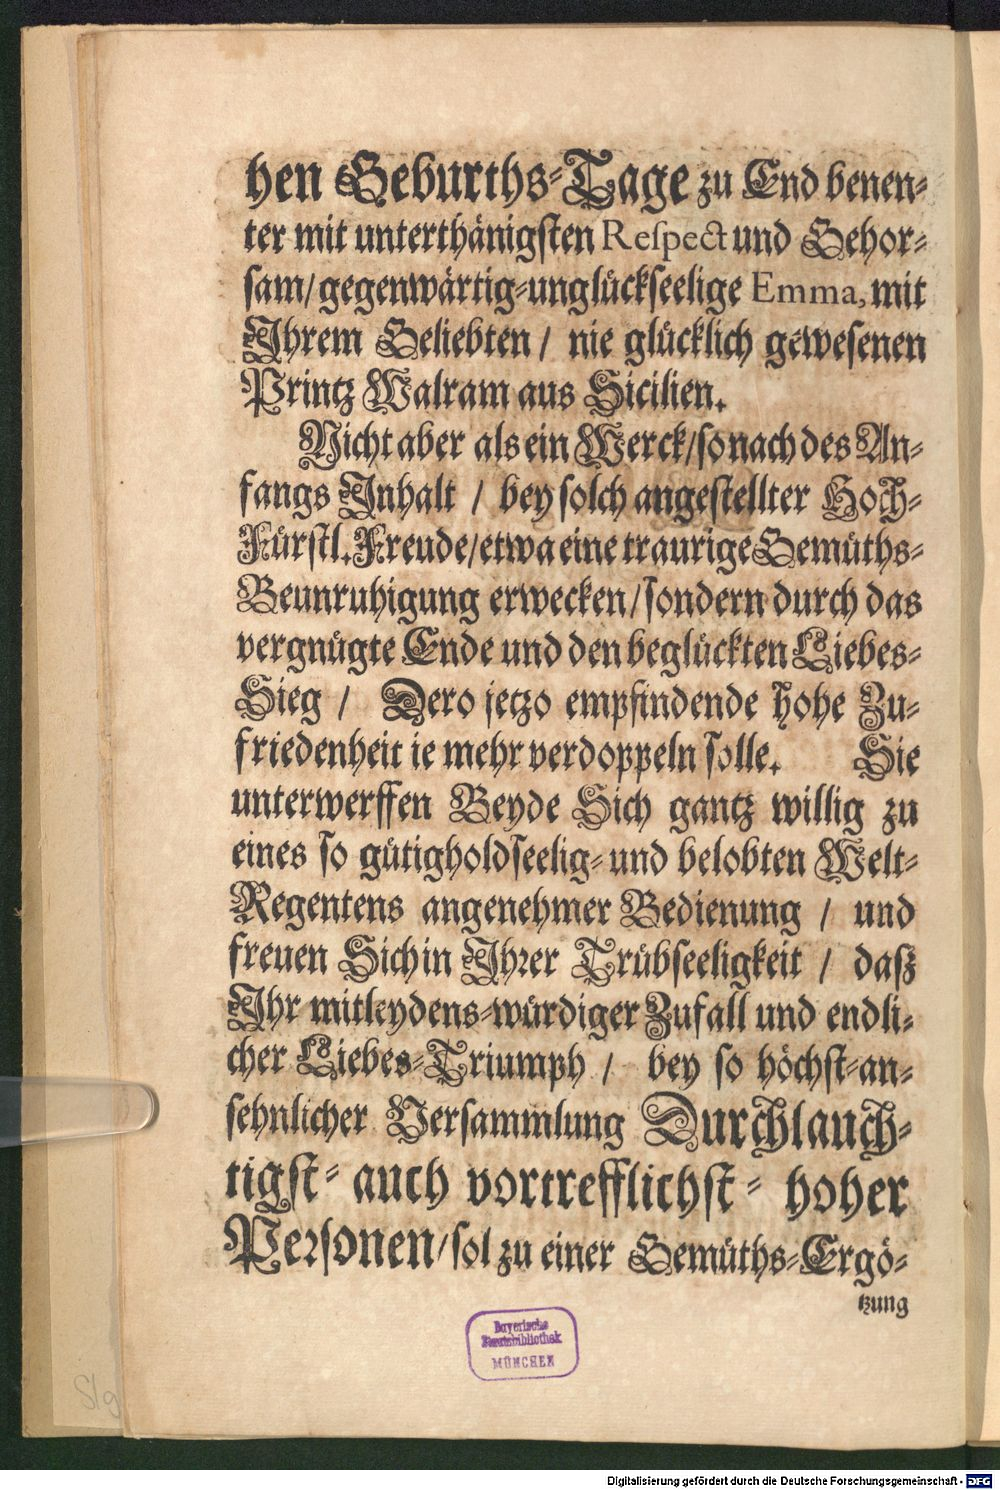 hen Geburths-Tage zu End benen-
ter mit unterthänigsten Respect und Gehor-
sam/ gegenwärtig-unglückseelige Emma, mit
Ihrem Geliebten / nie glücklich gewesenen
Printz Walram aus Sicilien.
Nicht aber als ein Werck/ so nach des An-
fangs Inhalt / bey solch angestellter Hoch-
Fürstl. Freude/ etwa eine traurige Gemüths-
Beunruhigung erwecken/ sondern durch das
vergnügte Ende und den beglückten Liebes-
Sieg / Dero jetzo empfindende hohe Zu-
friedenheit ie mehr verdoppeln solle. Sie
unterwerffen Beyde Sich gantz willig zu
eines so gütigholdseelig- und belobten Welt-
Regentens angenehmer Bedienung / und
freuen Sich in Ihrer Trübseeligkeit / daß
Ihr mitleydens-würdiger Zufall und endli-
cher Liebes-Triumph / bey so höchst-an-
sehnlicher Versammlung Durchlauch-
tigst- auch vortrefflichst- hoher
Personen/ sol zu einer Gemüths-Ergö-
tzung
Bayerische
Staatsbibliothek
MÜNCHEN
Slg
Digitalisierung gefördert durch die Deutsche Forschungsgemeinschaft - DFG